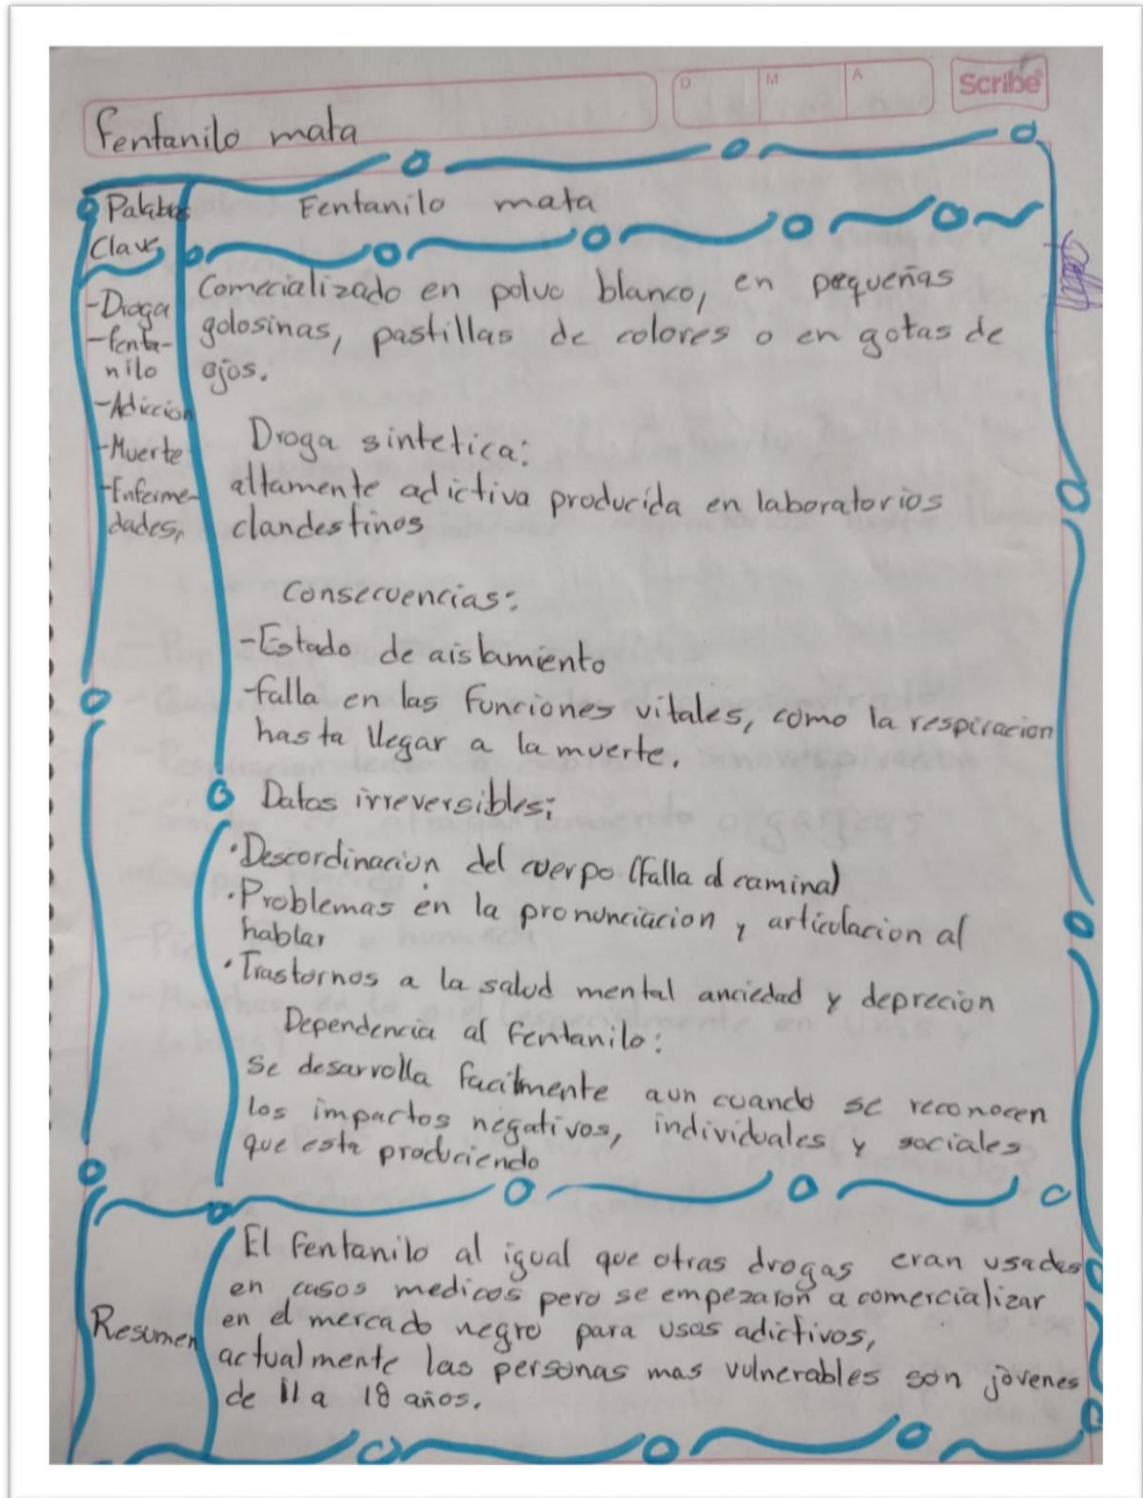 Scribe
D M A
Fentanilo mata
Palabras
Clave
-Droga
-fenta-
nilo
-Adiccion
-Muerte
-Enferme-
dades,
Fentanilo mata
Comecializado en polvo blanco, en pequeñas
golosinas, pastillas de colores o en gotas de
ojos.
Droga sintetica:
altamente adictiva producida en laboratorios
clandestinos
Consecuencias:
-Estado de aislamiento
-falla en las funciones vitales, como la respiracion
hasta llegar a la muerte.
Datos irreversibles:
·Descordinacion del cuerpo (falla al caminal)
·Problemas en la pronunciacion y articulacion al
hablar
·Trastornos a la salud mental anciedad y deprecion
Dependencia al fentanilo:
se desarrolla facilmente aun cuando se reconocen
los impactos negativos, individuales y sociales
que esta produciendo
Resumen
El fentanilo al igual que otras drogas eran usadas
en casos medicos pero se empezaron a comercializar
en el mercado negro para usos adictivos,
actualmente las personas mas vulnerables son jóvenes
de 11 a 18 años.